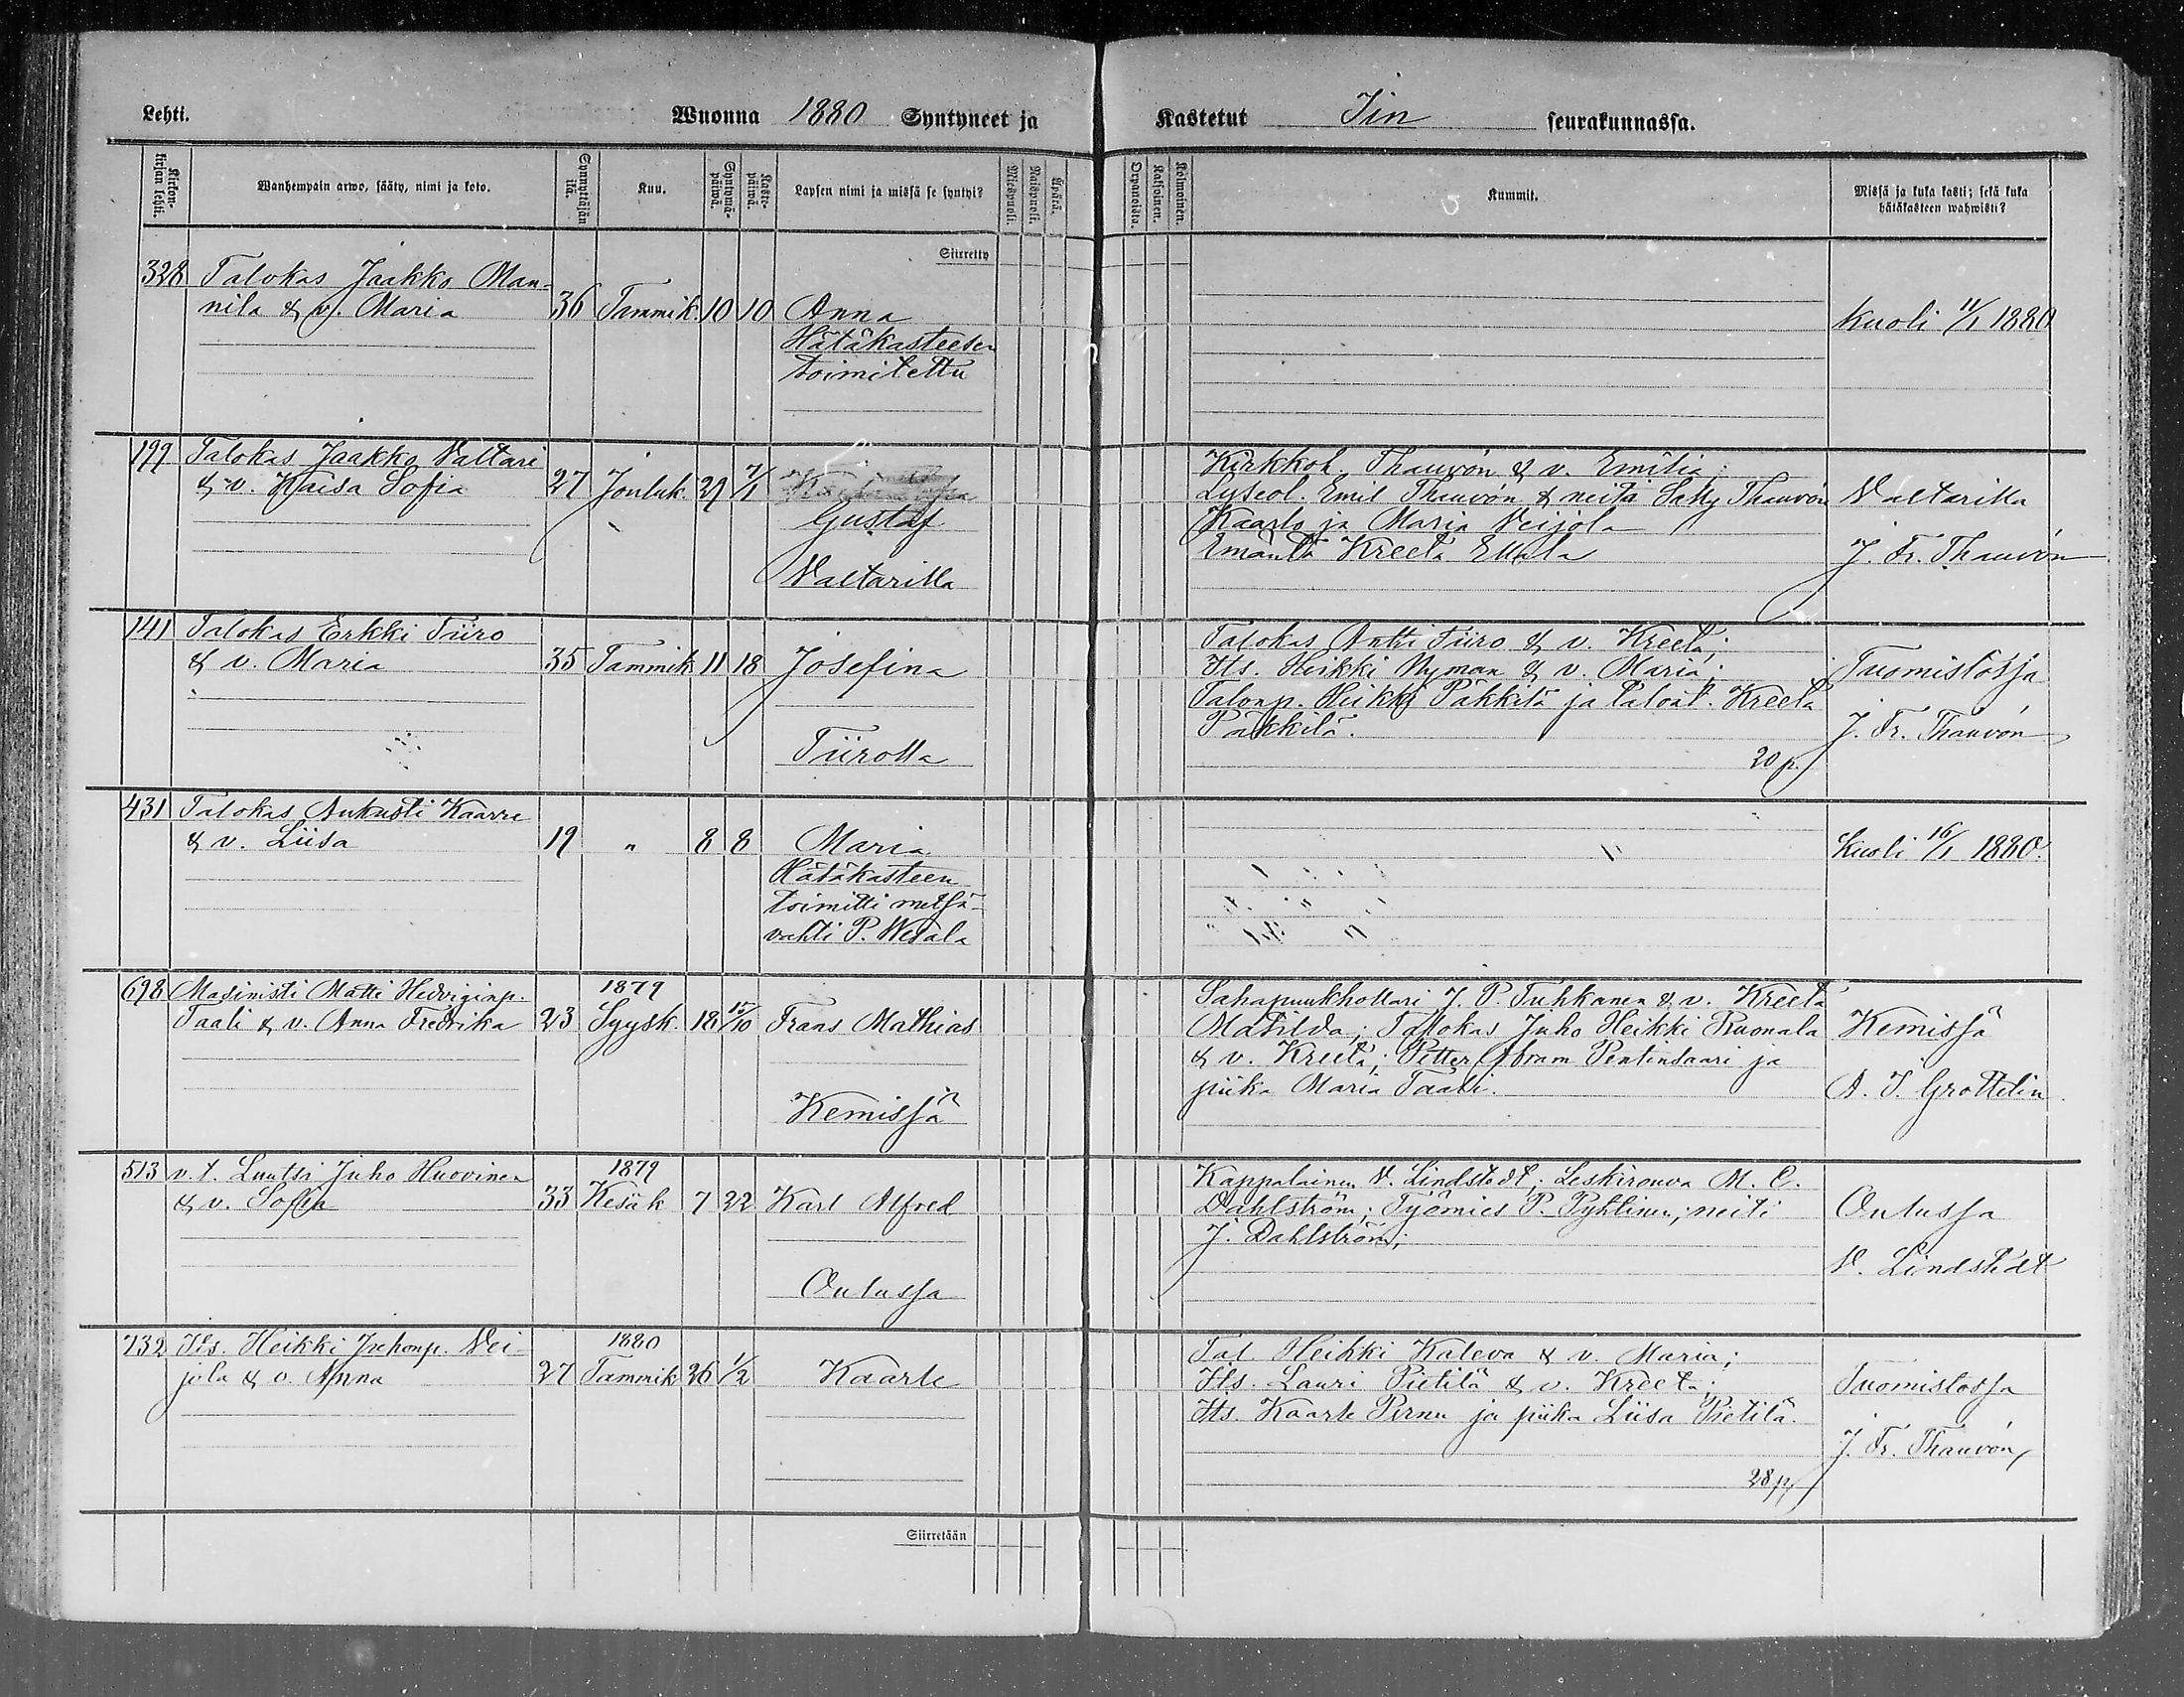 Lehti. Wuonna 1880 Syntyneet ja Kastetut Iin seurakunnassa.
Kirkonkirjan lehti.
Wanhempain arwo, sääty, nimi ja koto.
Synnyttäjän ikä.
Kuu.
Syntymäpäiwä.
Kastepäiwä.
Lapsen nimi ja missä se syntyi?
Miespuoli.
Naispuoli.
Äpärä.
Kaksoinen.
Kolmoinen.
Kummit.
Missä ja kuka kasti; sekä kuka
hätäkasteen wahwisti?
Siirretty
328 Talokas Jaakko Man-
nila & v. Maria 36 Tammik. 10 10 Anna
Hätäkasteesen
toimitettu
Kuoli 11/1 1880
199 Talokas Jaakko Valtari
& v. Kaisa Sofia 27 Jouluk. 29 7/1
Gustaf
Valtarilla
Kirkkoh. Thauvón & v. Emilia;
Lyseol. Emil Thauvón & neita Sally Thauvón
Kaarlo ja Maria Veijola
Emäntä Kreeta
Valtarilla
J. Fr. Thauvón
141 Talokas Erkki Tiiro
& v. Maria 35 Tammik 11 18 Josefina
Tiirolla
Talokas Antti Tiiro & v. Kreeta;
Its. Heikki Nyman & v. Maria;
Talonp. Heikki Päkkilä ja taloat. Kreeta
Päkkilä.
20 p.
Tuomistossa
J. Fr. Thauvón
431 Talokas Aukusti Kaarre
& v. Liisa 19 " 8 8 Maria
Hätäkasteen
toimitti metsä-
vahti P. Wesala
Kuoli 16/1 1880.
698 Masinisti Matti Hedviginp.
Taali & v. Anna Fredrika 23 1879 Syysk. 18 15/10 Frans Mathias
Kemissä
Sahapuukhollari J. P. Tuhkanen & v. Kreeta
Matilda; Talokas Juho Heikki Ruonala
& v. Kreeta; Petter Abram Pentinsaari ja
piika Maria Taali.
Kemissä
A. J. Grottelin
513 v. t. Luutsi Juho Huovinen
& v. Sofia 33 1879 Kesäk 7 22 Karl Alfred
Oulussa
Kappalainen V. Lindstedt; Leskirouva M. C.
Dahlström; Työmies P. Pyhtinen; neiti
J. Dahlström;
Oulussa
V. Lindstedt
232 Its. Heikki Juhonp. Vei-
jola & v. Anna 27 1880 Tammik 26 1/2 Kaarle
Tal. Heikki Kaleva & v. Maria;
Its. Lauri Pietilä & v. Kreeta;
Its. Kaarle Pernu ja piika Liisa Pietilä.
28 p.
Tuomistossa
J. Fr. Thauvón
Siirretään